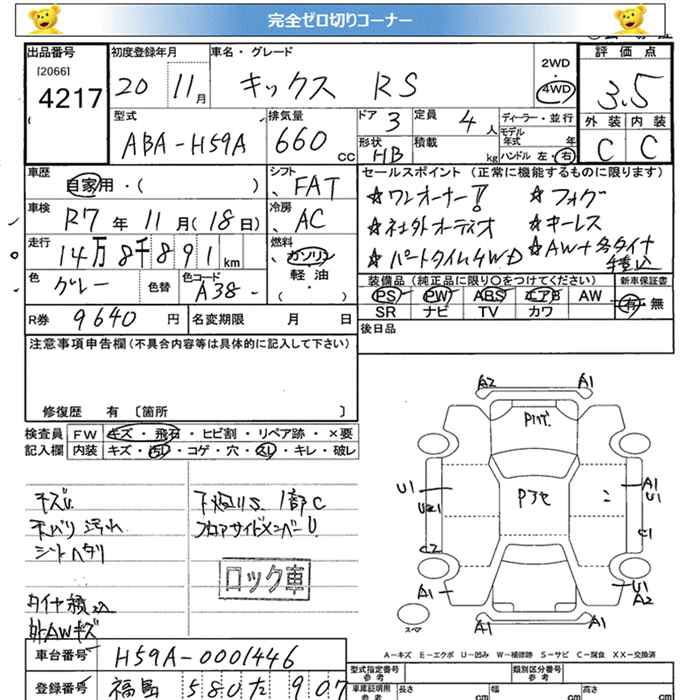 完全ゼロ切りコーナー
出品番号 初度登録年月 車名・グレード 評価点
[2066]
4217
20 11月 キックス RS
2WD
4WD
3.5
型式 排気量 ドア 3 定員 4人 ディーラー・並行 外装 内装
モデル年式 年
ABA-H59A 660cc
形状 HB 積載 kg ハンドル 左・右 C C
車歴 シフト セールスポイント(正常に機能するものに限ります)
自家用・( ) FAT
☆ワンオーナー! ☆フォグ
車検 R7年11月(18日) 冷房 AC
☆社外オーディオ ☆キーレス
走行 14万8千891km 燃料 ガソリン
軽油
( ・ )
☆パートタイム4WD ☆AW+冬タイヤ
積込
色 グレー 色替 色コード A38
装備品(純正品に限り○をつけてください) 新車保証書
PS PW ABS エアB AW 有・無
SR ナビ TV カワ
R券 9640円 名変期限 月 日
後日品
注意事項申告欄(不具合内容等は具体的に記入して下さい)
修復歴 有 〔箇所 〕
検査員 FW キズ・飛石・ヒビ割・リペア跡・×要
記入欄 内装 キズ・汚レ・コゲ・穴・スレ・キレ・破レ
キズU 下廻りS、1部C
天バリ汚れ フロアサイドメンバーU
シートヘタリ
ロック車
タイヤ積込
外AWキズ
A2 A1
P1ガ
P3セ
U1
U21
C2
A1
A1
U1
C1
U1
A2
A1 A1
スペア
A-キズ E-エクボ U-凹み W-補修跡 S-サビ C-腐食 XX-交換済
車台番号 H59A-0001446
登録番号 福島 580 た 907
型式指定番号 参考 類別区分番号 参考
車庫証明用 参考 長さ cm 幅 cm 高さ cm